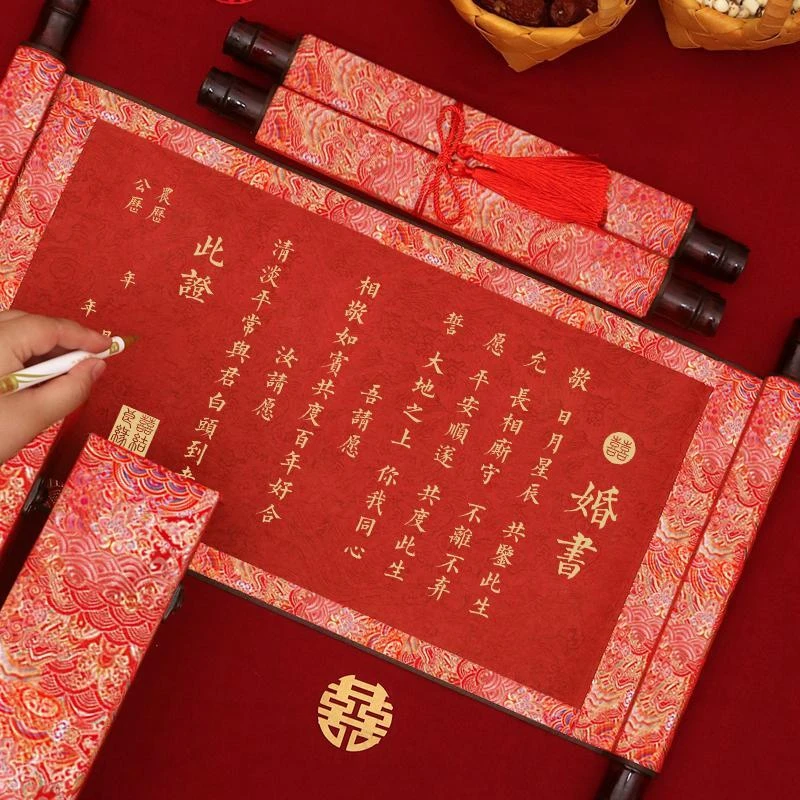 婚書
囍
敬 日月星辰 共鑒此生
允 長相廝守 不離不弃
愿 平安順遂 共度此生
誓 大地之上 你我同心
吾請愿
相敬如賓共度百年好合
汝請愿
清淡平常與君白頭到
此證
農曆 年 月
公曆 年
囍結
良緣
囍